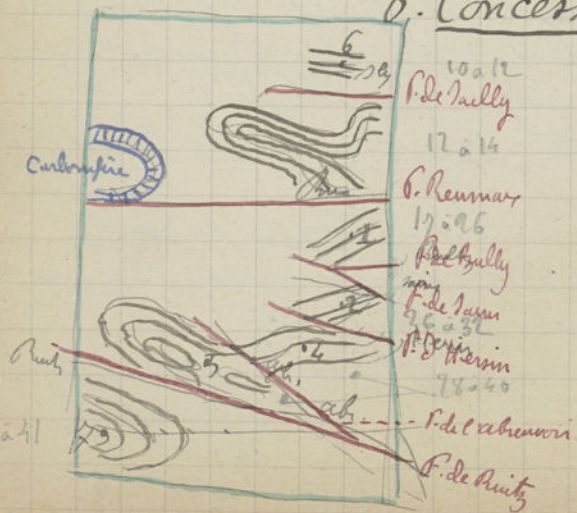 6. Concess
6
10 à 12
F. de Sailly
12 à 14
Carbonifère
F. Reumaux
17 à 26
1
F. de Bully
2
26 à 32
F. d'Hersin
3
4
28 à 40
Ruitz
abr
F. de l'abreuvoir
à 41
F. de Ruitz